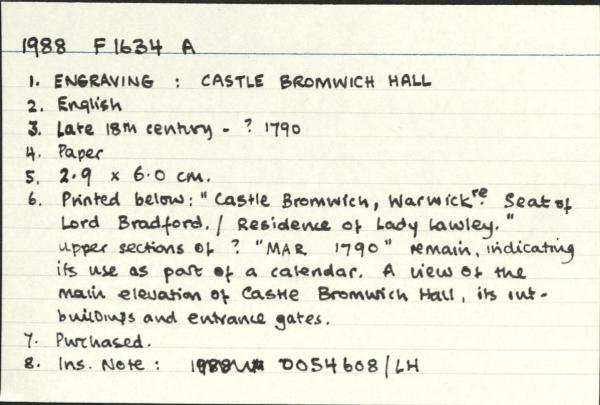 1988 F1634 A
1. ENGRAVING : CASTLE BROMWICH HALL
2. English
3. Late 18th century - ? 1790
4. Paper
5. 2.9 x 6.0 cm.
6. Printed below: "Castle Bromwich, Warwick're. Seat of
Lord Bradford. / Residence of Lady Lawley."
Upper sections of ? "MAR 1790" remain, indicating
its use as part of a calendar. A view of the
main elevation of Castle Bromwich Hall, its out-
buildings and entrance gates.
7. Purchased.
8. Ins. Note : 1988 0054608/LH